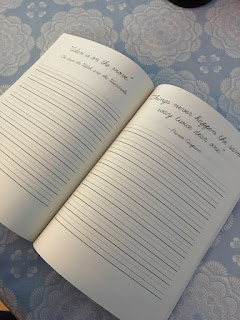 "Aslan is on the move."
- The Lion, the Witch and the Wardrobe
"Things never happen the same
way twice dear one."
- Prince Caspian